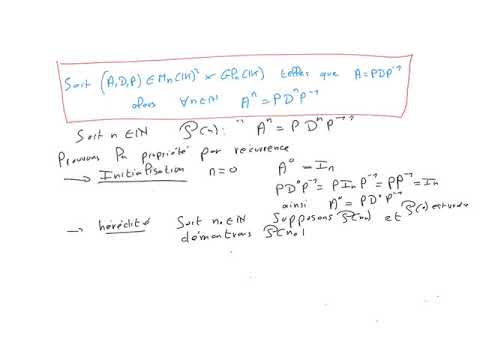 Soit (A,D,P) ∈ Mn(IK)² × GLn(IK) telles que A = PDP⁻¹
alors ∀n∈IN Aⁿ = PDⁿP⁻¹
Soit n ∈ IN P(n): " Aⁿ = P Dⁿ P⁻¹ "
Prouvons la propriété par récurrence
→ Initialisation n=0 A⁰ = In
PD⁰P⁻¹ = P In P⁻¹ = PP⁻¹ = In
ainsi A⁰ = PD⁰P⁻¹
et P(0) est vraie
→ hérédité Soit n₀ ∈ IN Supposons P(n₀)
démontrons P(n₀